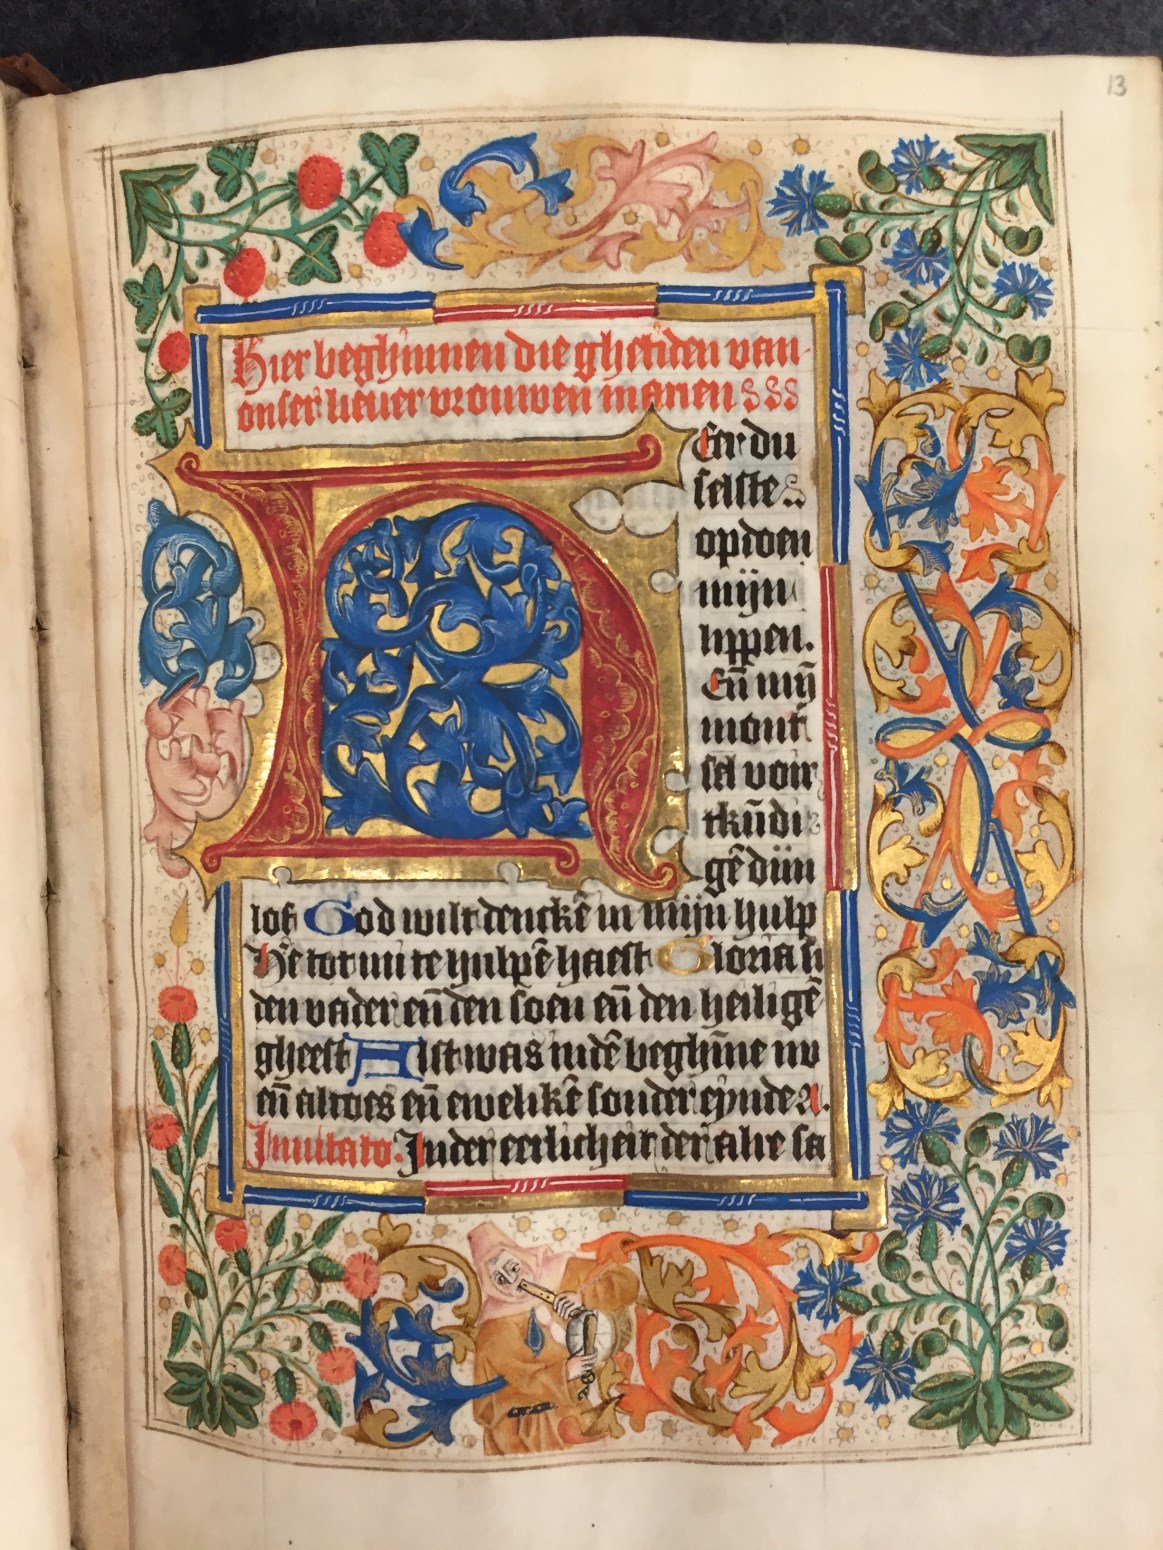 13
Hier beghinnen die ghetiden van
onser lieuer vrouwen marien
HEer du
selste
opdoen
mijn
lippen.
Eñ mij̄
mont
sel voir
tkūdi
gē dijn
lof God wilt dencke̅ in mijn hulp
He̅ tot mi te hulpe̅ haest Gloria si
den vader en̅ den soen en̅ den heilige̅
gheest Alst was inde̅ beghi̅ne nv
en̅ altoes en̅ ewelike̅ sonder eynde A.
Inuitato. In der eerlicheit der alre sa